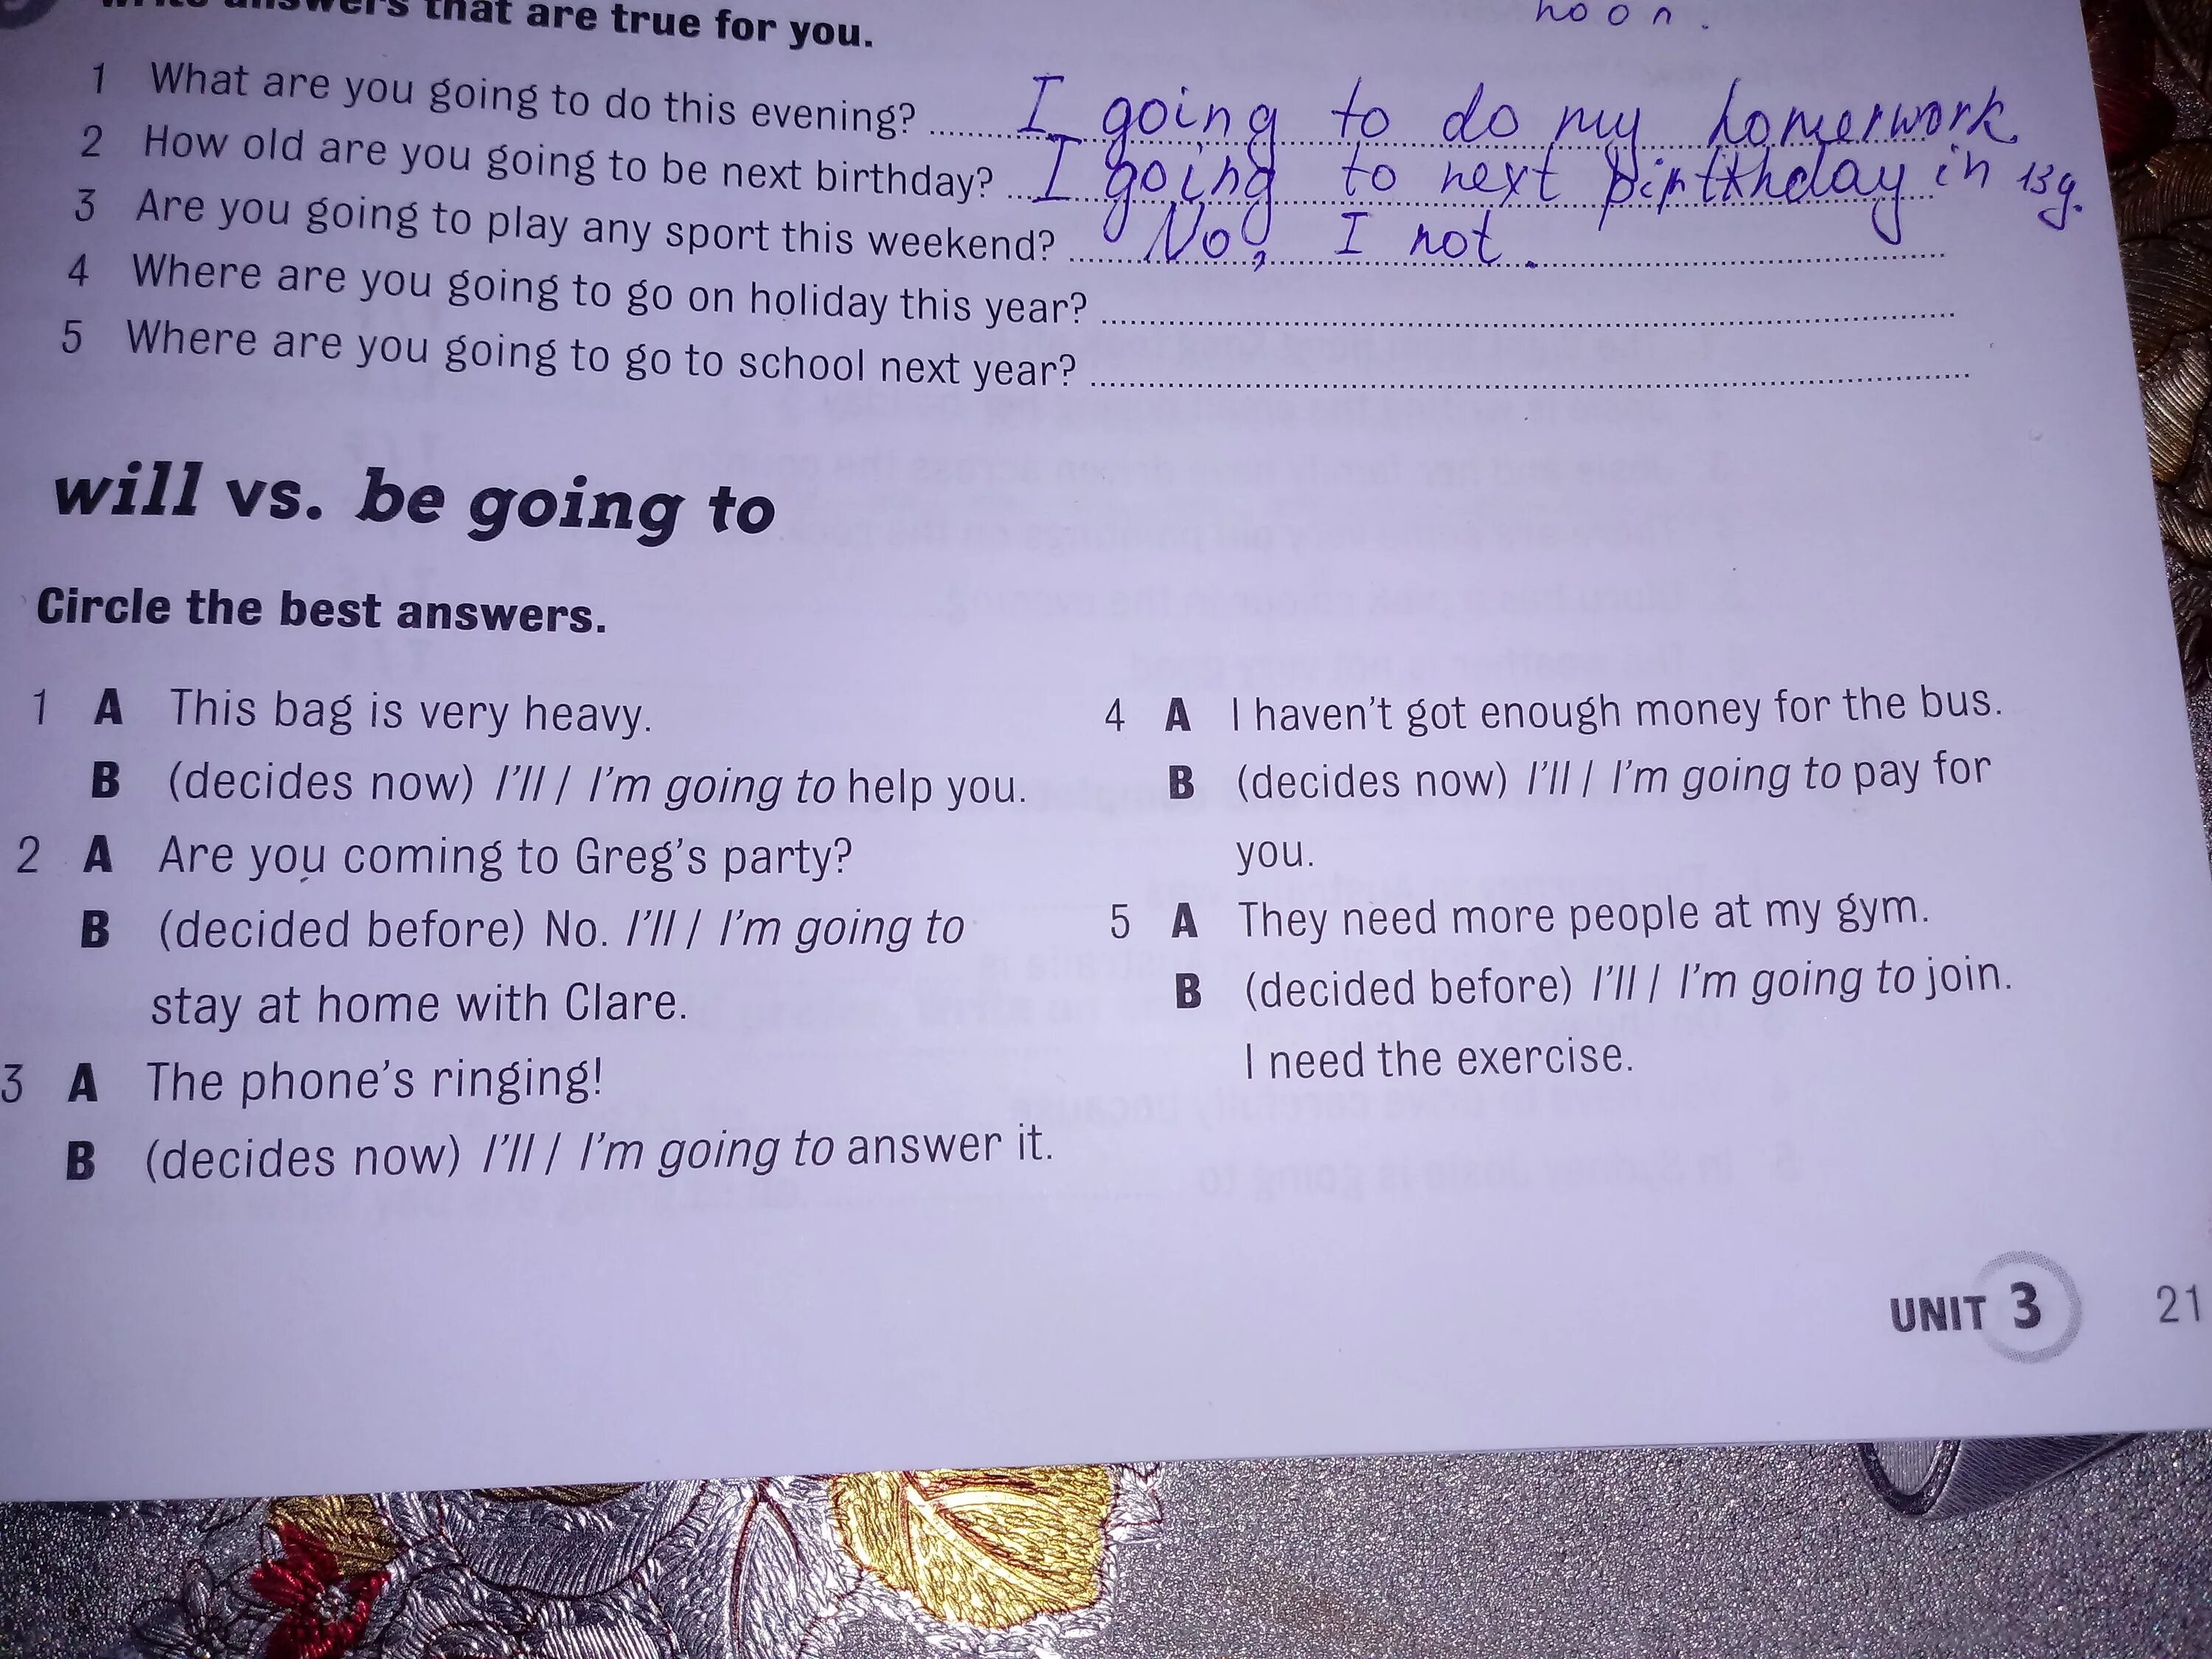 noon.
answers that are true for you.
1 What are you going to do this evening? I going to do my homerwork
2 How old are you going to be next birthday? I going to next birthday in 13 y.
3 Are you going to play any sport this weekend? No, I not.
4 Where are you going to go on holiday this year?
5 Where are you going to go to school next year?
will vs. be going to
Circle the best answers.
1 A This bag is very heavy.
B (decides now) I'll / I'm going to help you.
2 A Are you coming to Greg's party?
B (decided before) No. I'll / I'm going to
stay at home with Clare.
3 A The phone's ringing!
B (decides now) I'll / I'm going to answer it.
4 A I haven't got enough money for the bus.
B (decides now) I'll / I'm going to pay for
you.
5 A They need more people at my gym.
B (decided before) I'll / I'm going to join.
I need the exercise.
UNIT 3 21